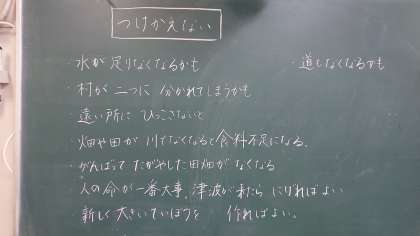 つけかえない
・水が足りなくなるかも
・道もなくなるかも
・村が二つに分かれてしまうかも
遠い所にひっこさないと
・畑や田が川でなくなると食料不足になる。
・がんばってたがやした田畑がなくなる
・人の命が一番大事。津波が来たらにげればよい
・新しく大きいていぼうを作ればよい。